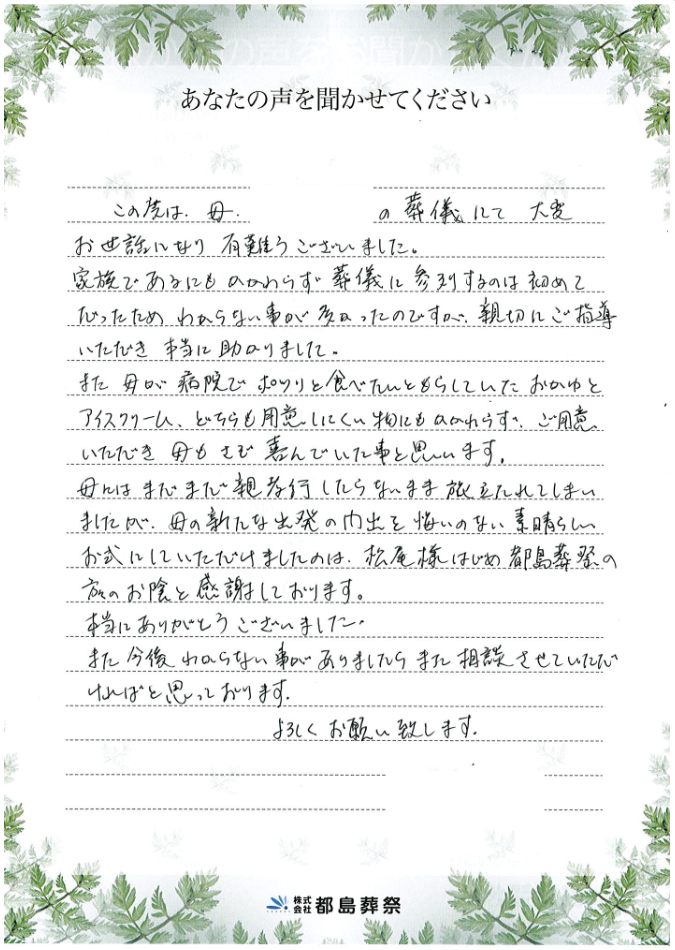 あなたの声を聞かせてください
この度は、母、 の葬儀にて 大変
お世話になり 有難うございました。
家族であるにもかかわらず 葬儀に参列するのは初めて
だったため わからない事が多かったのですが、親切にご指導
いただき 本当に助かりました。
また 母が病院でポツリと食べたいともらしていた おかゆと
アイスクリーム、どちらも用意しにくい物にもかかわらず、ご用意
いただき 母もさぞ喜んでいた事と思います。
母にはまだまだ親孝行したらないまま 旅立たれてしまい
ましたが、母の新たな出発の門出を悔いのない素晴らしい
お式にしていただけましたのは、松尾様はじめ都島葬祭の
方々のお陰と感謝しております。
本当にありがとうございました。
また今後わからない事がありましたら また相談させていただ
ければと思っております。
よろしくお願い致します。
株式会社 都島葬祭